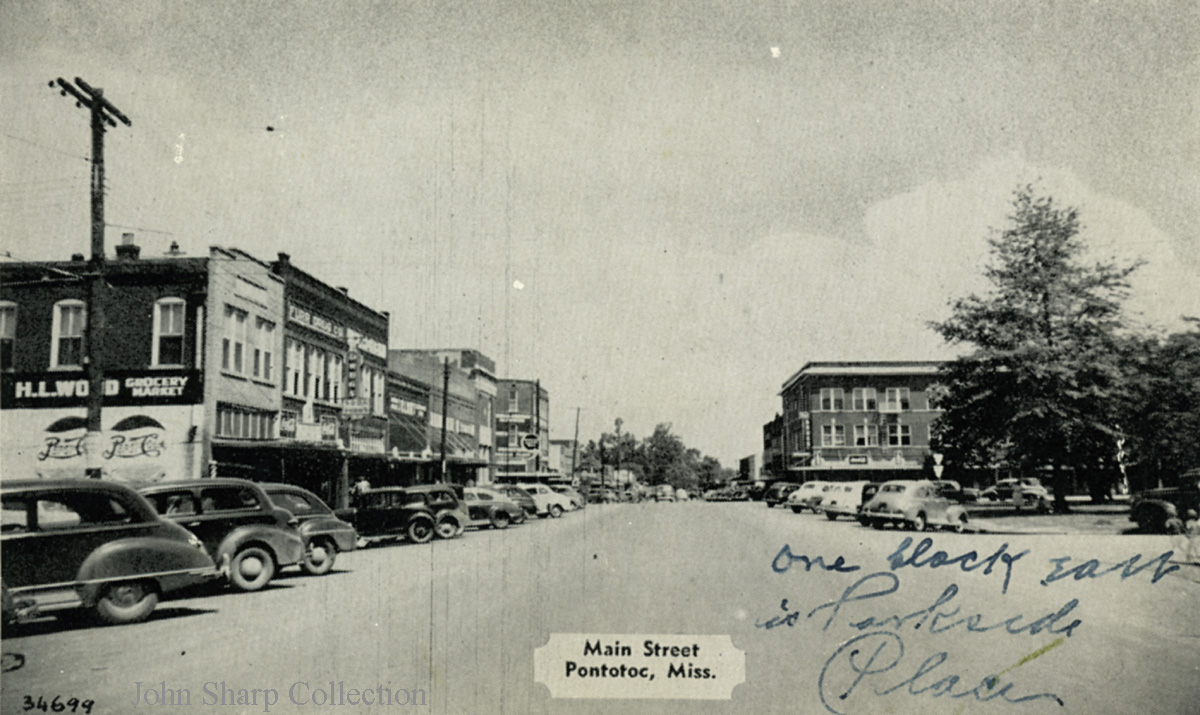 H.L. WOOD GROCERY
MARKET
Pepsi-Cola Pepsi-Cola
one block east
is Parkside
Place
Main Street
Pontotoc, Miss.
34699
John Sharp Collection